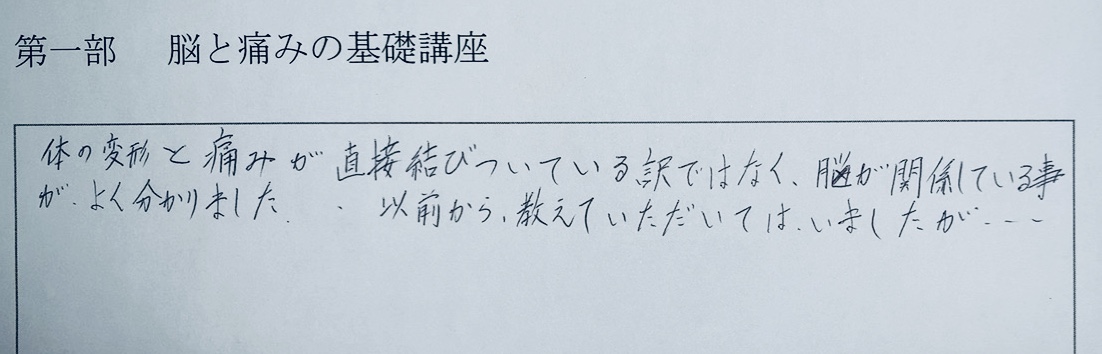 第一部　脳と痛みの基礎講座
体の変形と痛みが直接結びついている訳ではなく、脳が関係している事
が、よく分かりました。以前から、教えていただいては、いましたが・・・